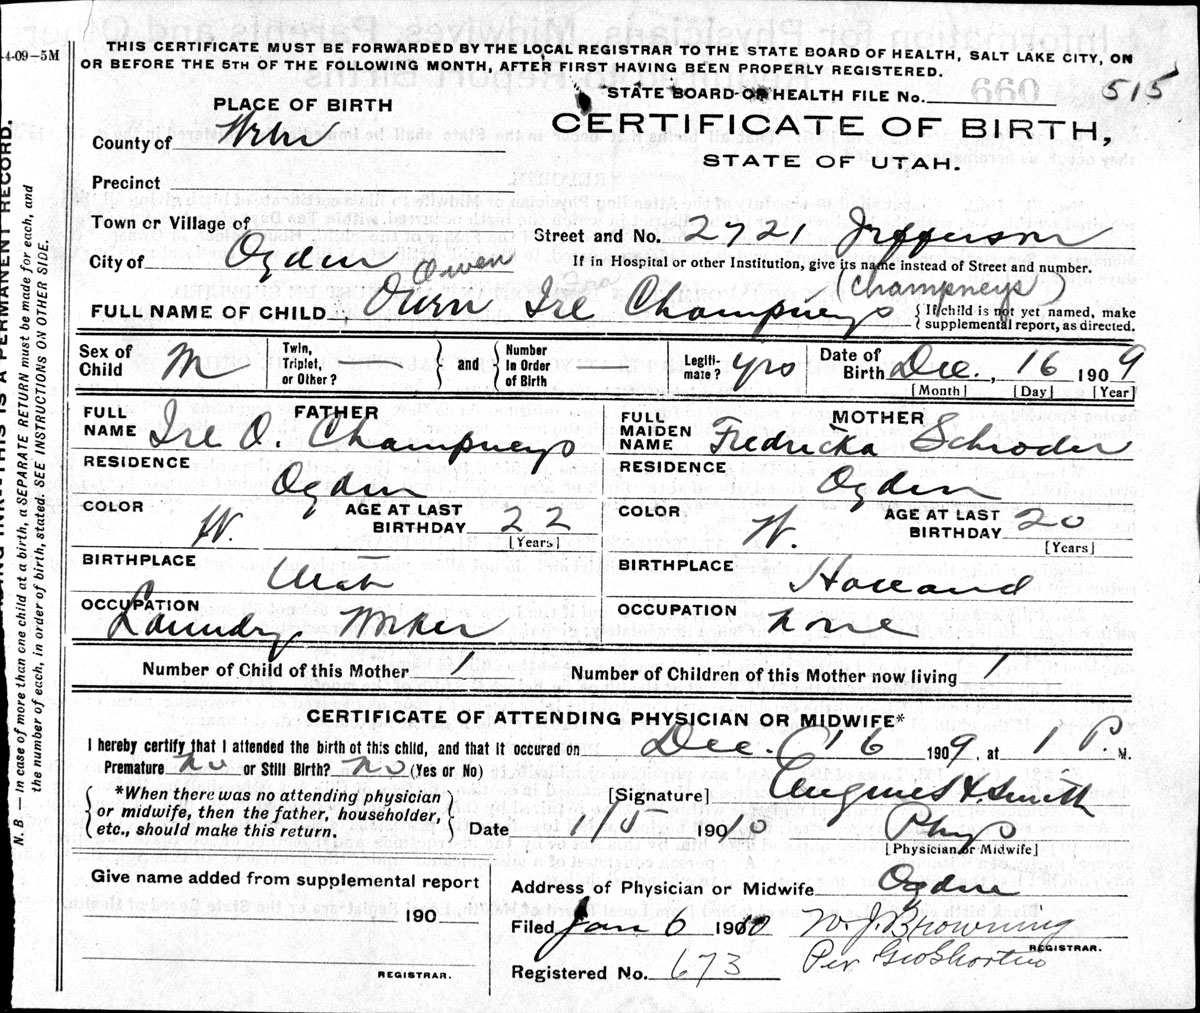 4-09-5M
THIS CERTIFICATE MUST BE FORWARDED BY THE LOCAL REGISTRAR TO THE STATE BOARD OF HEALTH, SALT LAKE CITY, ON
OR BEFORE THE 5TH OF THE FOLLOWING MONTH, AFTER FIRST HAVING BEEN PROPERLY REGISTERED.
STATE BOARD OF HEALTH FILE No. 515
660
PLACE OF BIRTH
CERTIFICATE OF BIRTH,
STATE OF UTAH.
County of Weber
Precinct
Town or Village of
Street and No. 2721 Jefferson
City of Ogden
If in Hospital or other Institution, give its name instead of Street and number.
Owen Era (Champneys)
FULL NAME OF CHILD Owen Ire Champneys { If child is not yet named, make
supplemental report, as directed.
Sex of Child M
Twin, Triplet, or Other? } and { Number In Order of Birth
Legitimate? yes
Date of Birth Dec., 16 1909
[Month] [Day] [Year]
FATHER
FULL NAME Ire O. Champneys
MOTHER
FULL MAIDEN NAME Fredricka Schroder
RESIDENCE Ogden
RESIDENCE Ogden
COLOR W. AGE AT LAST BIRTHDAY 22 [Years]
COLOR W. AGE AT LAST BIRTHDAY 20 [Years]
BIRTHPLACE Utah
BIRTHPLACE Holland
OCCUPATION Laundry Worker
OCCUPATION None
Number of Child of this Mother 1 Number of Children of this Mother now living 1
CERTIFICATE OF ATTENDING PHYSICIAN OR MIDWIFE*
I hereby certify that I attended the birth of this child, and that it occured on Dec. 16 1909, at 1 P. M.
Premature no or Still Birth? no (Yes or No)
{ *When there was no attending physician
or midwife, then the father, householder,
etc., should make this return. }
[Signature] H. Smith
Date 1/5 1910 Phys
[Physician or Midwife]
Give name added from supplemental report
190
REGISTRAR.
Address of Physician or Midwife Ogden
Filed Jan 6 1910 W. J. Browning
REGISTRAR.
Registered No. 673 Per Geo Shorten
N. B. — In case of more than one child at a birth, a SEPARATE RETURN must be made for each, and
the number of each, in order of birth, stated. SEE INSTRUCTIONS ON OTHER SIDE.
INK--THIS IS A PERMANENT RECORD.